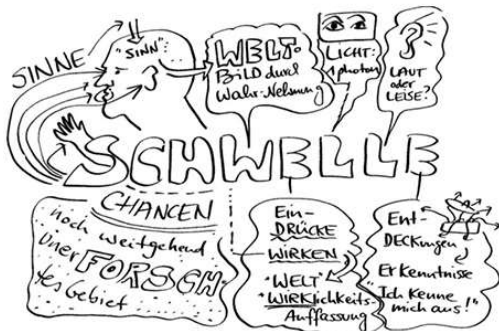 SINNE
"SINN"
WELT-
BiLD durch
Wahr-Nehmung
LICHT:
1 photon
?
LAUT
oder
LEISE?
SCHWELLE
CHANCEN
noch weitgehend
Uner FORSCH-
tes Gebiet
EIN-
DRÜCKE
WIRKEN
"WELT"
"WIRKlichkeits-
Auffassung
Ent-
DECKungen
Erkenntnisse
"Ich kenne
mich aus!"